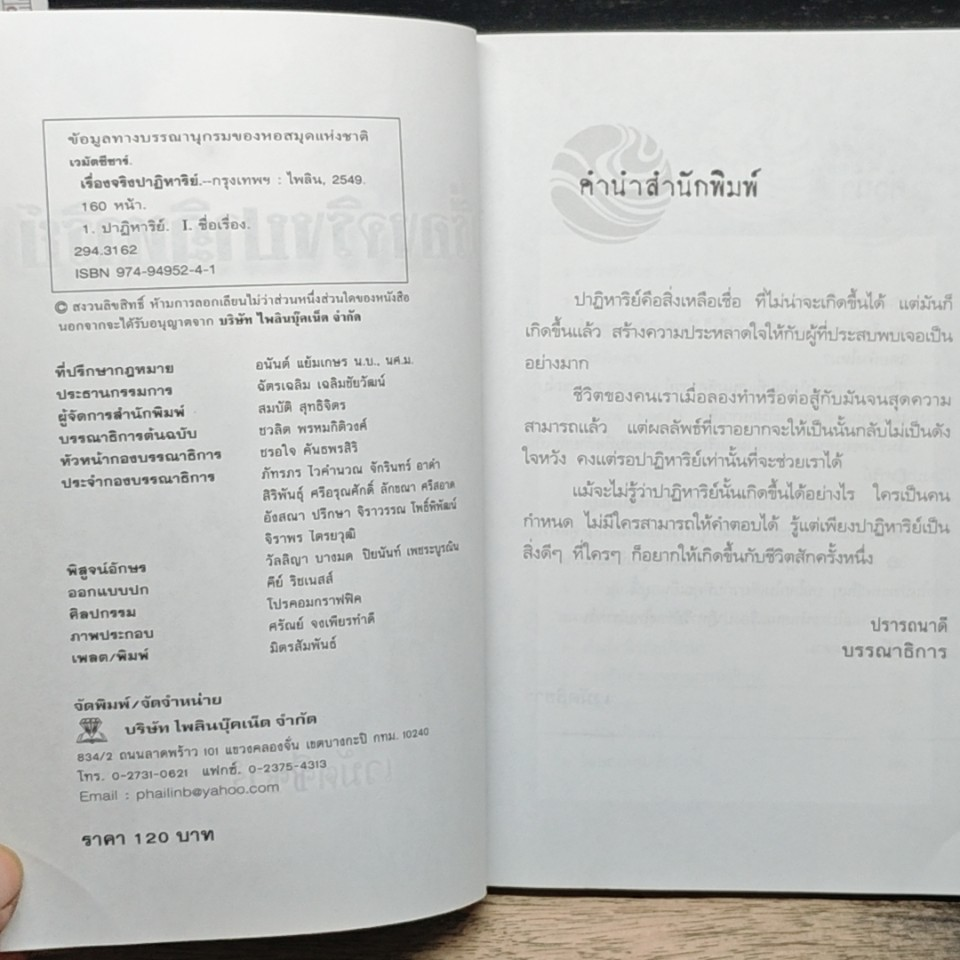 ข้อมูลทางบรรณานุกรมของหอสมุดแห่งชาติ
เวมัตซีซาร์.
เรื่องจริงปาฏิหาริย์.--กรุงเทพฯ : ไพลิน, 2549.
160 หน้า.
1. ปาฏิหาริย์. I. ชื่อเรื่อง.
294.3162
ISBN 974-94952-4-1
© สงวนลิขสิทธิ์ ห้ามการลอกเลียนไม่ว่าส่วนหนึ่งส่วนใดของหนังสือ
นอกจากจะได้รับอนุญาตจาก บริษัท ไพลินบุ๊คเน็ต จำกัด
ที่ปรึกษากฎหมาย อนันต์ แย้มเกษร น.บ., นศ.ม.
ประธานกรรมการ ฉัตรเฉลิม เฉลิมชัยวัฒน์
ผู้จัดการสำนักพิมพ์ สมบัติ สุทธิจิตร
บรรณาธิการต้นฉบับ ชวลิต พรหมกิติวงค์
หัวหน้ากองบรรณาธิการ ชรอใจ คันธพรสิริ
ประจำกองบรรณาธิการ ภัทรภร ไวคำนวณ จักรินทร์ อาดำ
สิริพันธุ์ ศรีอรุณศักดิ์ ลักขณา ศรีสอาด
อังสณา ปรึกษา จิราวรรณ โพธิ์พิพัฒน์
จิราพร ไตรยวุฒิ
พิสูจน์อักษร วัลลิญา บางมด ปิยนันท์ เพชระบูรณิน
ออกแบบปก คีย์ ริชเนสส์
ศิลปกรรม โปรคอมกราฟฟิค
ภาพประกอบ ศรัณย์ จงเพียรทำดี
เพลต/พิมพ์ มิตรสัมพันธ์
จัดพิมพ์/จัดจำหน่าย
บริษัท ไพลินบุ๊คเน็ต จำกัด
834/2 ถนนลาดพร้าว 101 แขวงคลองจั่น เขตบางกะปิ กทม. 10240
โทร. 0-2731-0621 แฟกซ์. 0-2375-4313
Email : phailinb@yahoo.com
ราคา 120 บาท
คำนำสำนักพิมพ์
ปาฏิหาริย์คือสิ่งเหลือเชื่อ ที่ไม่น่าจะเกิดขึ้นได้ แต่มันก็
เกิดขึ้นแล้ว สร้างความประหลาดใจให้กับผู้ที่ประสบพบเจอเป็น
อย่างมาก
ชีวิตของคนเราเมื่อลองทำหรือต่อสู้กับมันจนสุดความ
สามารถแล้ว แต่ผลลัพธ์ที่เราอยากจะให้เป็นนั้นกลับไม่เป็นดัง
ใจหวัง คงแต่รอปาฏิหาริย์เท่านั้นที่จะช่วยเราได้
แม้จะไม่รู้ว่าปาฏิหาริย์นั้นเกิดขึ้นได้อย่างไร ใครเป็นคน
กำหนด ไม่มีใครสามารถให้คำตอบได้ รู้แต่เพียงปาฏิหาริย์เป็น
สิ่งดีๆ ที่ใครๆ ก็อยากให้เกิดขึ้นกับชีวิตสักครั้งหนึ่ง
ปรารถนาดี
บรรณาธิการ